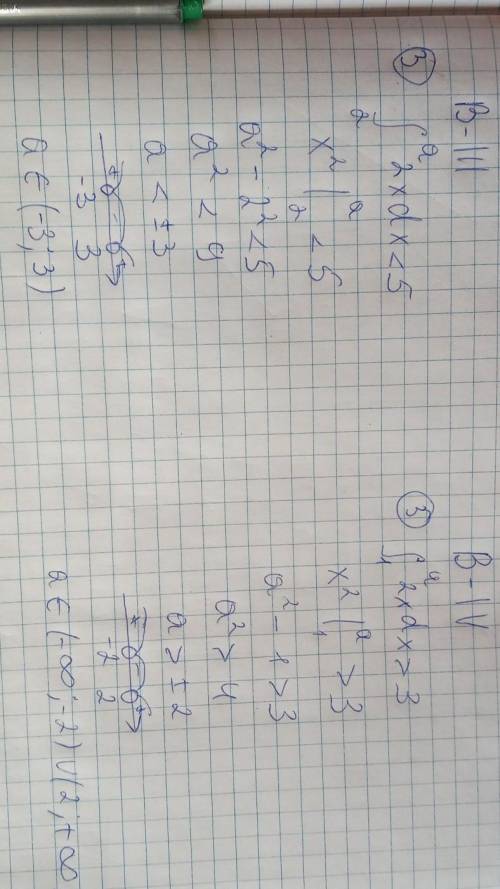 В-III
③ ∫₂ᵃ 2xdx<5
x² |₂ᵃ <5
a² - 2² < 5
a² < 9
a < ±3
+ - +
-3 3
a ∈ (-3; 3)
В-IV
③ ∫₁ᵃ 2xdx>3
x² |₁ᵃ >3
a² - 1 > 3
a² > 4
a > ±2
+ - +
-2 2
a ∈ (-∞; -2) ∪ (2; +∞